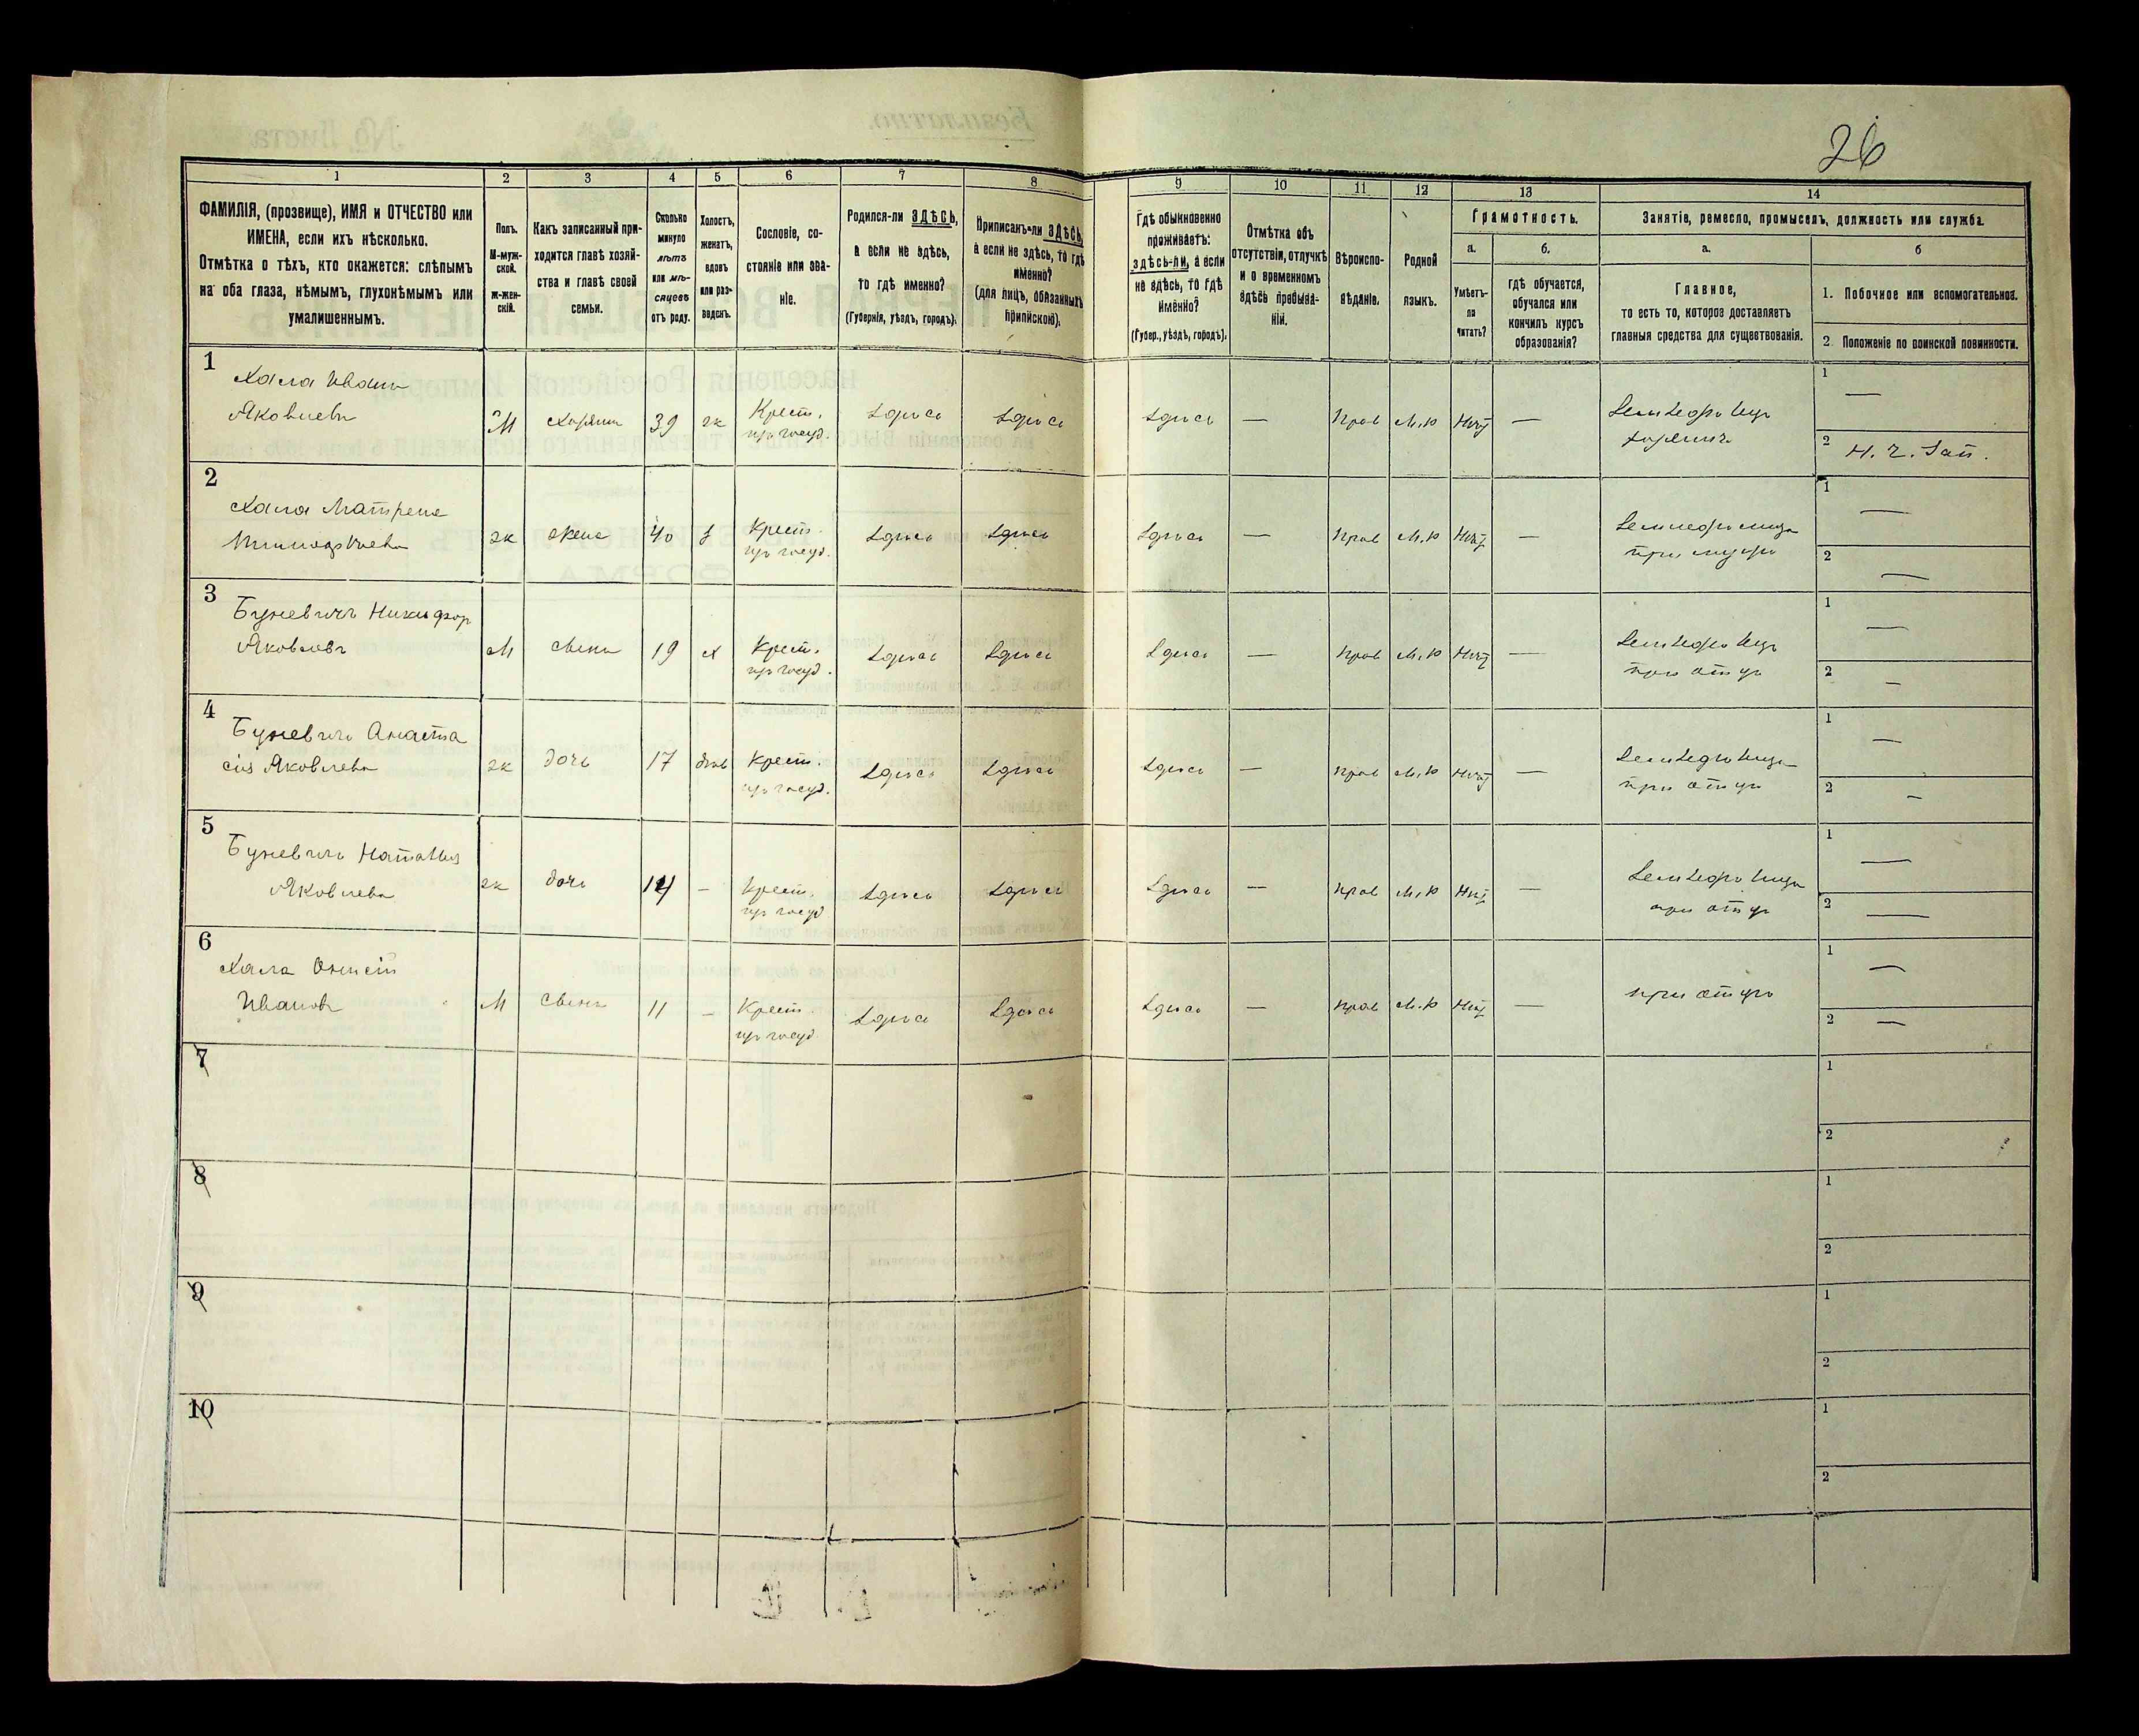 26
1
2
3
4
5
6
7
8
9
10
11
12
13
14
ФАМИЛІЯ, (прозвище), ИМЯ и ОТЧЕСТВО или
ИМЕНА, если ихъ нѣсколько.
Отмѣтка о тѣхъ, кто окажется: слѣпымъ
на оба глаза, нѣмымъ, глухонѣмымъ или
умалишеннымъ.
Полъ.
М-муж-
ской.
Ж-жен-
скій.
Какъ записанный при-
ходится главѣ хозяй-
ства и главѣ своей
семьи.
Сколько
минуло
лѣтъ
или мѣ-
сяцевъ
отъ роду.
Холостъ,
женатъ,
вдовъ
или раз-
веденъ.
Сословіе, со-
стояніе или зва-
ніе.
Родился-ли ЗДѢСЬ,
а если не здѣсь,
то гдѣ именно?
(Губернія, уѣздъ, городъ).
Приписанъ-ли ЗДѢСЬ,
а если не здѣсь, то гдѣ
именно?
(для лицъ, обязанныхъ
припискою).
Гдѣ обыкновенно
проживаетъ:
здѣсь-ли, а если
не здѣсь, то гдѣ
именно?
(Губер., уѣздъ, городъ).
Отмѣтка объ
отсутствіи, отлучкѣ
и о временномъ
здѣсь пребыва-
ніи.
Вѣроиспо-
вѣданіе.
Родной
языкъ.
Грамотность.
а.
Умѣетъ-
ли
читать?
б.
гдѣ обучается,
обучался или
кончилъ курсъ
образованія?
Занятіе, ремесло, промыселъ, должность или служба.
а.
Главное,
то есть то, которое доставляетъ
главныя средства для существованія.
б
1. Побочное или вспомогательное.
2. Положеніе по воинской повинности.
1
Хала Иванъ
Яковлевъ
М
хозяинъ
39
ж
Крест.
изъ госуд.
здѣсь
здѣсь
здѣсь
—
Прав
М.р
Нѣт
—
Земледѣлецъ
хозяинъ
1
—
2
Н. ч. Зап.
2
Хала Матрена
ж
жена
40
з
Крест.
изъ госуд.
здѣсь
здѣсь
здѣсь
—
прав
М.р
Нѣт
—
при мужѣ
1
—
2
—
3
Буневичъ Никифор
Яковлевъ
М
19
х
Крест.
изъ госуд.
здѣсь
здѣсь
здѣсь
—
прав
М.р
Нѣт
—
Земледѣлецъ
при отцѣ
1
—
2
—
4
Буневичъ Анаста
сія Яковлева
ж
дочь
17
дѣв
Крест.
изъ госуд.
здѣсь
здѣсь
здѣсь
—
прав
М.р
Нѣт
—
при отцѣ
1
—
2
—
5
Буневичъ Наталія
Яковлева
ж
дочь
14
—
Крест.
изъ госуд
здѣсь
здѣсь
здѣсь
—
прав
М.р
Нѣт
—
при отцѣ
1
—
2
—
6
Хала
Ивановъ
М
11
—
Крест.
изъ госуд.
здѣсь
здѣсь
здѣсь
—
прав
М.р
Нѣт
—
при отцѣ
1
—
2
—
7
1
2
8
1
2
9
1
2
10
1
2